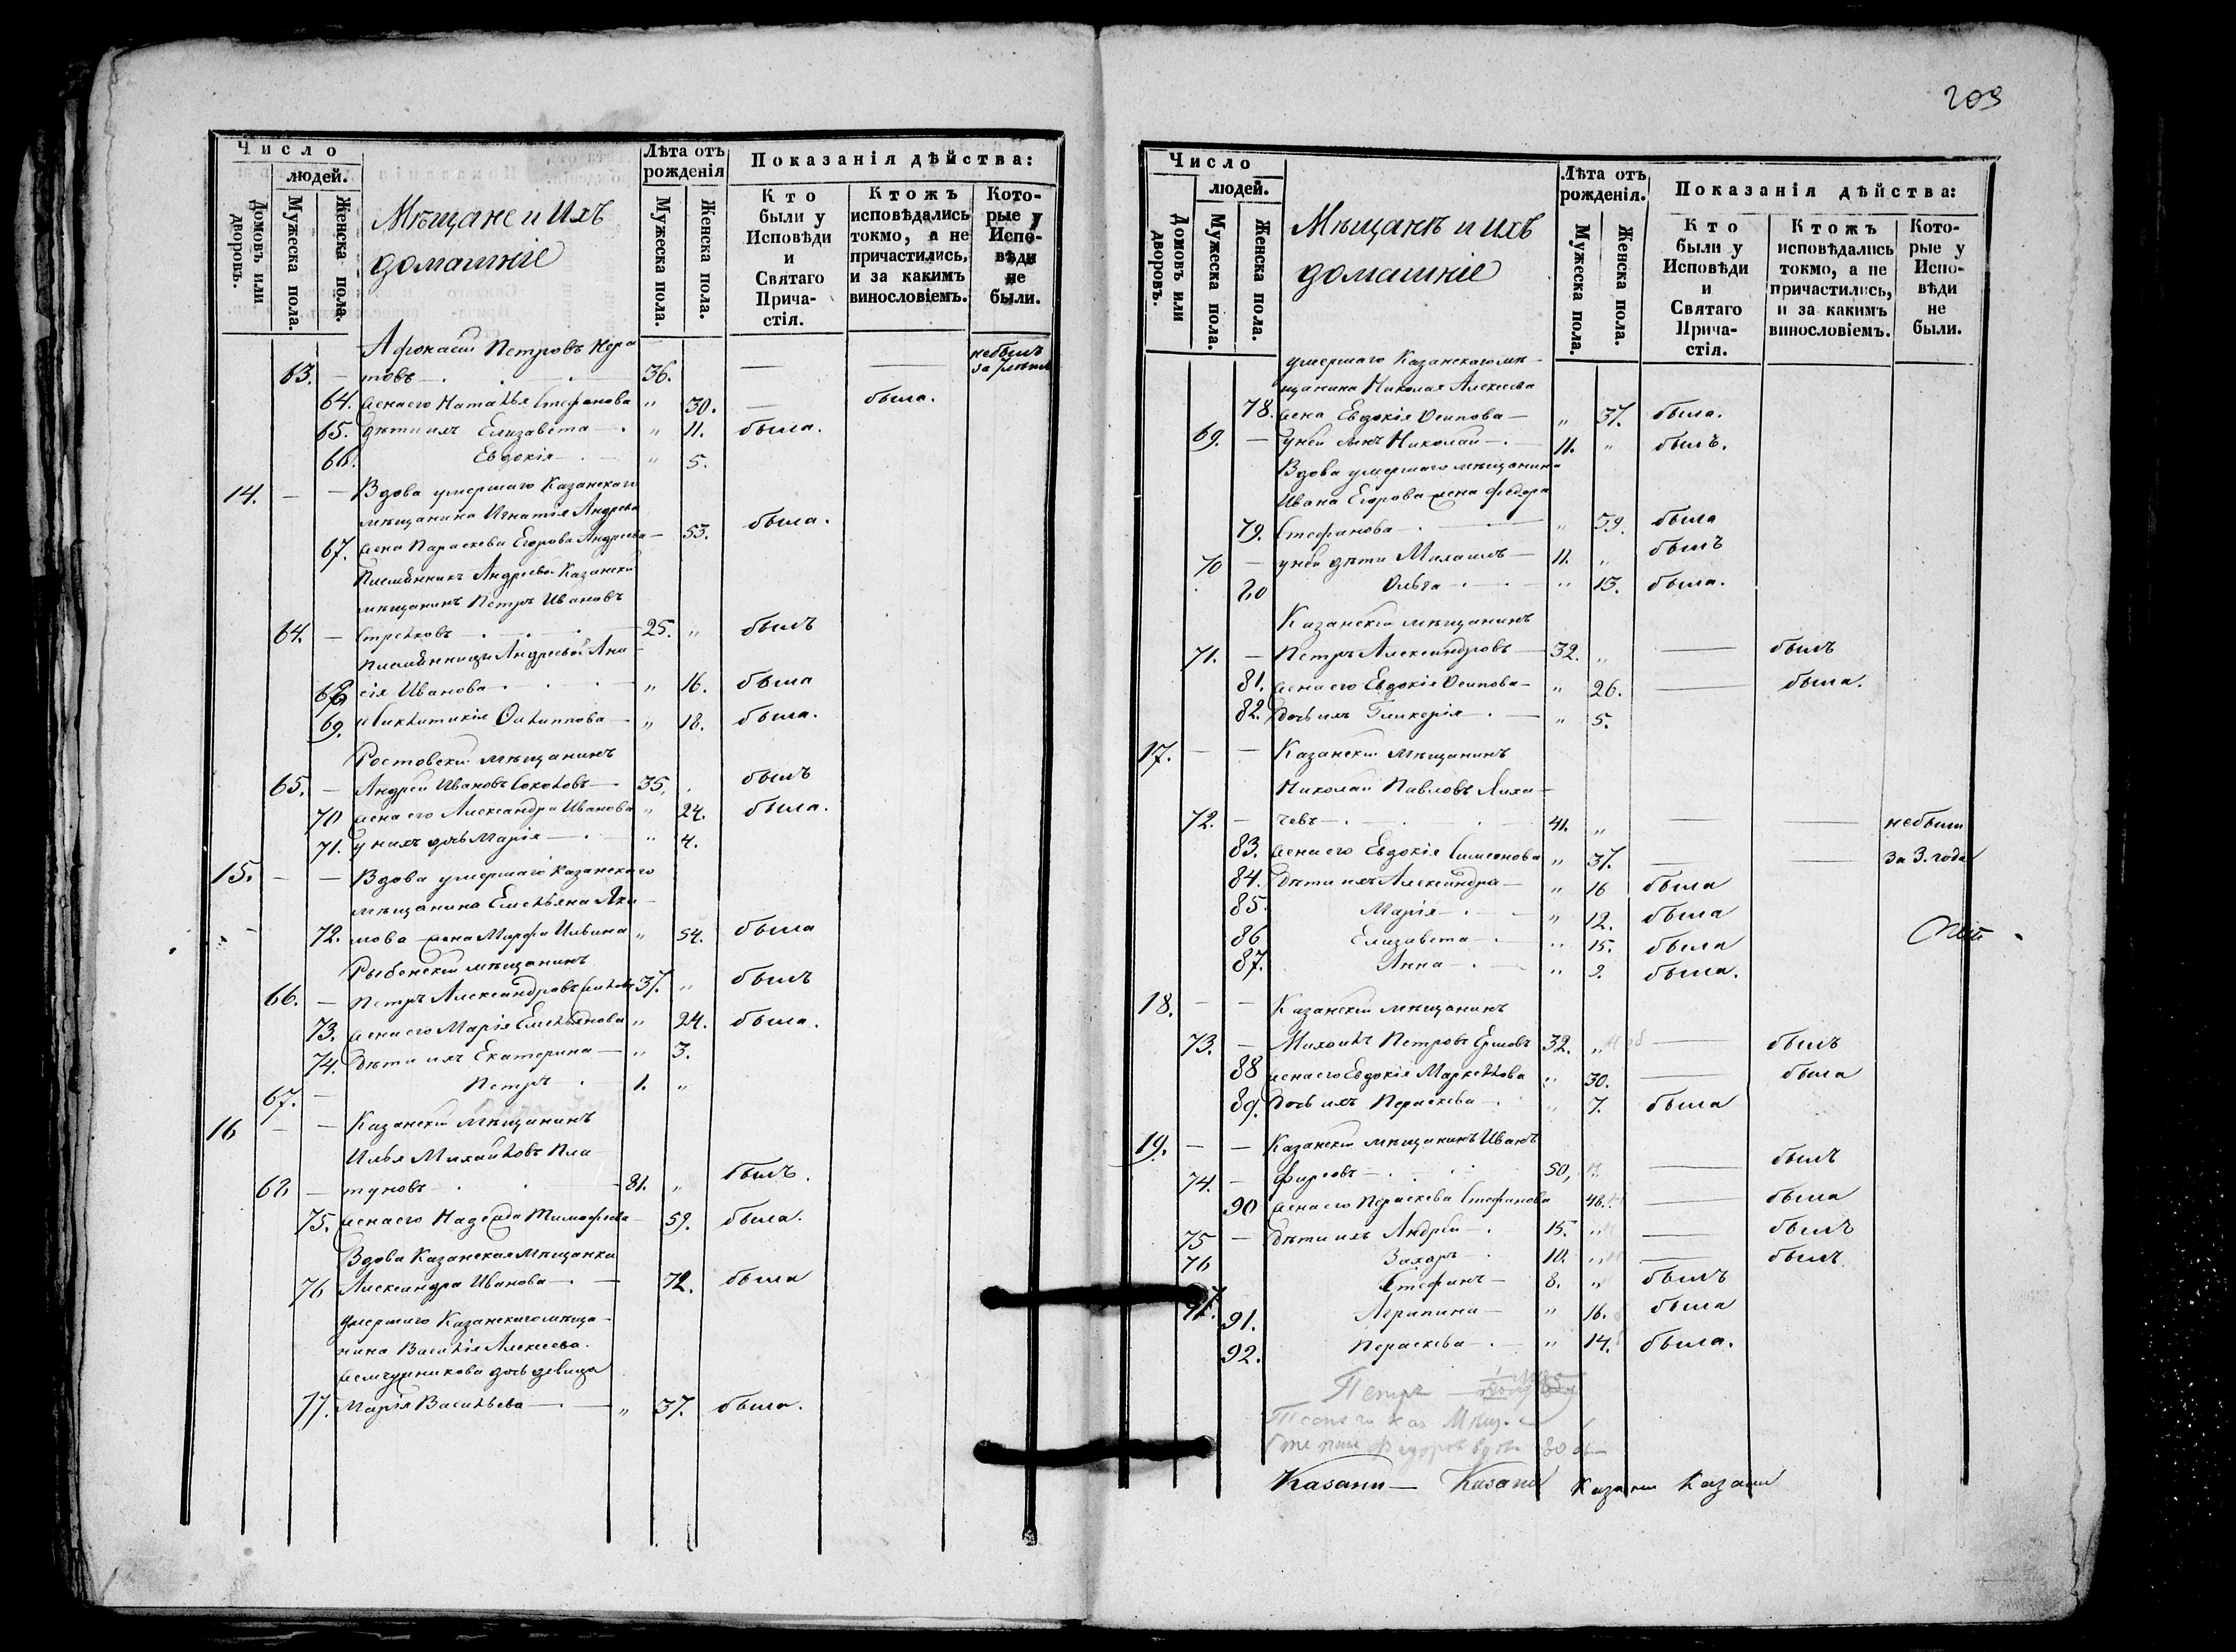 Число
людей.
Домовъ или дворовъ.
Мужеска пола.
Женска пола.
Мѣщане и Ихъ
домашніе
Лѣта отъ
рожденія
Мужеска пола.
Женска пола.
Показанія дѣйства:
Кто были у Исповѣди и Святаго Прича-стія.
Ктожъ исповѣдались токмо, а не причастились, и за какимъ винословіемъ.
Кото-рые у Испо-вѣди не были.
Афонасий Петровъ
63. — товъ — 36. — — небылъ
64. жена его Наталья Стефанова „ 30. — была.
65. дѣти ихъ Елизавета — „ 11. была.
66. Евдокія — „ 5.
14. — — Вдова умершаго Казанскаго
мѣщанина Игнатія Андреева
67. жена Параскева Егорова Андреева — 53. была.
Племянникъ Андреевой Казанский
мѣщанинъ Петръ Ивановъ
64. — Стрелковъ — 25. „ былъ
племянницы Андреевой Ани-
68 сія Иванова — „ 16. была
69. Филиппова — „ 18. была.
Ростовский мѣщанинъ
65. — Андрей Ивановъ Соколовъ — 35. былъ
70 жена его Александра Иванова „ 24. была.
71. у нихъ дочь Марія — „ 4.
15. — — Вдова умершаго Казанскаго
мѣщанина Емельяна Яки-
72. мова жена Марфа Ильина „ 54. была
Рыбенский мѣщанинъ
66. — Петръ Александровъ 37. „ былъ
73. жена его Марія Емельянова „ 24. была.
74. Дѣти ихъ Екатерина — „ 3.
67. — Петръ — 1. „
16 — — Казанский мѣщанинъ
Илья Михайловъ Пла-
68 — туновъ — 81. „ былъ.
75. жена его Надежда Тимофеева — 59. была.
Вдова Казанская Мѣщанка
76 Александра Иванова — 72. была
умершаго Казанскаго мѣща-
нина Василія Алексеева
Жемчужникова дочь девица
77. Марія Васильева — „ 37. была.
203
Число
людей.
Домовъ или дворовъ.
Мужеска пола.
Женска пола.
Мѣщанѣ и ихъ
домашніе
Лѣта отъ
рожденія.
Мужеска пола.
Женска пола.
Показанія дѣйства:
Кто были у Исповѣди и Святаго Прича-стія.
Ктожъ исповѣдались токмо, а не причастились, и за какимъ винословіемъ.
Кото-рые у Испо-вѣди не были.
умершаго Казанскаго мѣ-
щанина Николая Алексеева
78. жена Евдокія Осипова — „ 37. была.
69. — у ней сынъ Николай — 11. „ былъ.
Вдова умершаго мѣщанина
Ивана Егорова жена Федора
79. Стефанова — „ 59. была
70 — у ней дѣти Михаилъ — 11. „ былъ
80 Ольга — „ 13. была.
Казанский мѣщанинъ
71. — Петръ Александровъ — 32. „ — былъ
81. жена его Евдокія Осипова — „ 26. — была.
82. Дочь ихъ Гликерія — „ 5.
17. — — Казанский Мѣщанинъ
Николай Павловъ Лиха-
72. — чевъ — 41. „ — — небыли
83. жена его Евдокія Симеонова „ 37. — — за 3. года
84. Дѣти ихъ Александра — „ 16 была
85. Марія — „ 12. была
86 Елизавета — „ 15. была
87. Анна — „ 9. была.
18. — — Казанский мѣщанинъ
73. — Михаилъ Петровъ Ершовъ 32. „ — былъ
88 жена его Евдокія Маркеллова „ 30. — была
89. Дочь ихъ Пераскева — „ 7. была
19. — — Казанский мѣщанинъ Иванъ
74. — Фирсовъ — 50, — былъ
90 жена его Пераскева Стефанова 48. — была
75 — Дѣти ихъ Андрей — 15. „ — былъ
76 Захаръ — 10. „ — былъ
77. Стефанъ — 8. „ былъ
91. Агрипина — „ 16. была
92. Пераскева — „ 14. была.
Петръ
каз Мѣщ.
Казани — Казани Казани Казани